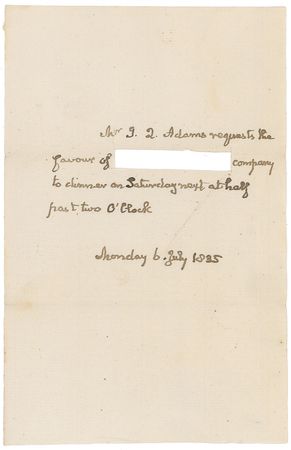 Mr J. Q. Adams requests the
favour of company
to dinner on Saturday next at half
past two O'Clock
Monday 6. July 1835